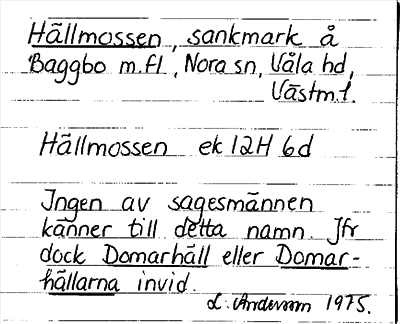 Hällmossen, sankmark å
Baggbo m.fl, Nora sn, Våla hd,
Västm.l.
Hällmossen ek 12H 6d
Ingen av sagesmännen
känner till detta namn. Jfr
dock Domarhäll eller Domar-
hällarna invid.
L. Andersson 1975.